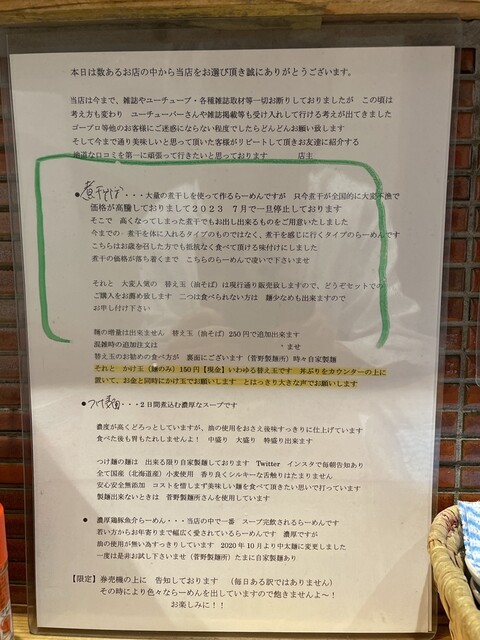 本日は数あるお店の中から当店をお選び頂き誠にありがとうございます。
当店は今まで、雑誌やユーチューブ・各種雑誌取材等一切お断りしておりましたが この頃は
考え方も変わり ユーチューバーさんや雑誌掲載等も受け入れして行ける考えが出てきました
ゴープロ等他のお客様にご迷惑にならない程度でしたらどんどんお願い致します
そして今まで通り美味しいと思って頂いた客様がリピートして頂きお友達に紹介する
地道な口コミを第一に頑張って行きたいと思っております 店主
● 煮干そば・・・大量の煮干しを使って作るらーめんですが 只今煮干が全国的に大変不漁で
価格が高騰しておりまして2023 7月で一旦停止しております
そこで 高くなってしまった煮干でもお出し出来るものをご用意いたしました
今までの 煮干を体に入れるタイプのものではなく、煮干を感じに行くタイプのらーめんです
こちらはお歳を召した方でも抵抗なく食べて頂ける味付けにしました
煮干の価格が落ち着くまで こちらのらーめんで凌いで下さいませ
それと 大変人気の 替え玉（油そば）は現行通り販売致しますので、どうぞセットでの
ご購入をお薦め致します 二つは食べられない方は 麺少なめも出来ますので
お申し付け下さい
麺の増量は出来ません 替え玉（油そば）250円で追加出来ます
混雑時の追加注文は ませ
替え玉のお勧めの食べ方が 裏面にございます（菅野製麺所）時々自家製麺
それと かけ玉（麺のみ）150円【現金】いわゆる替え玉です 丼ぶりをカウンターの上に
置いて、お金と同時にかけ玉でお願いします とはっきり大きな声でお願いします
● つけ麺・・・2日間煮込む濃厚なスープです
濃度が高くどろっとしていますが、油の使用をおさえ後味すっきりに仕上げています
食べた後も胃もたれしませんよ！ 中盛り 大盛り 特盛り出来ます
つけ麺の麺は 出来る限り自家製麺しております Twitter インスタで毎朝告知あり
全て国産（北海道産）小麦使用 香り良くシルキーな舌触りはたまりません
安心安全無添加 コストを惜しまず美味しい麺を食べて頂きたい思いで打っています
製麺出来ないときは 菅野製麺所さんを使用しています
● 濃厚鶏豚魚介らーめん・・・当店の中で一番 スープ完飲されるらーめんです
若い方からお年寄りまで幅広く愛されているらーめんです 濃厚ですが
油の使用が無い為すっきりしています 2020年10月より中太麺に変更しました
一度は是非お試し下さいませ（菅野製麺所）たまに自家製麺あり
【限定】券売機の上に 告知しております （毎日ある訳ではありません）
その時により色々ならーめんを出していますので飽きませんよ～！
お楽しみに！！